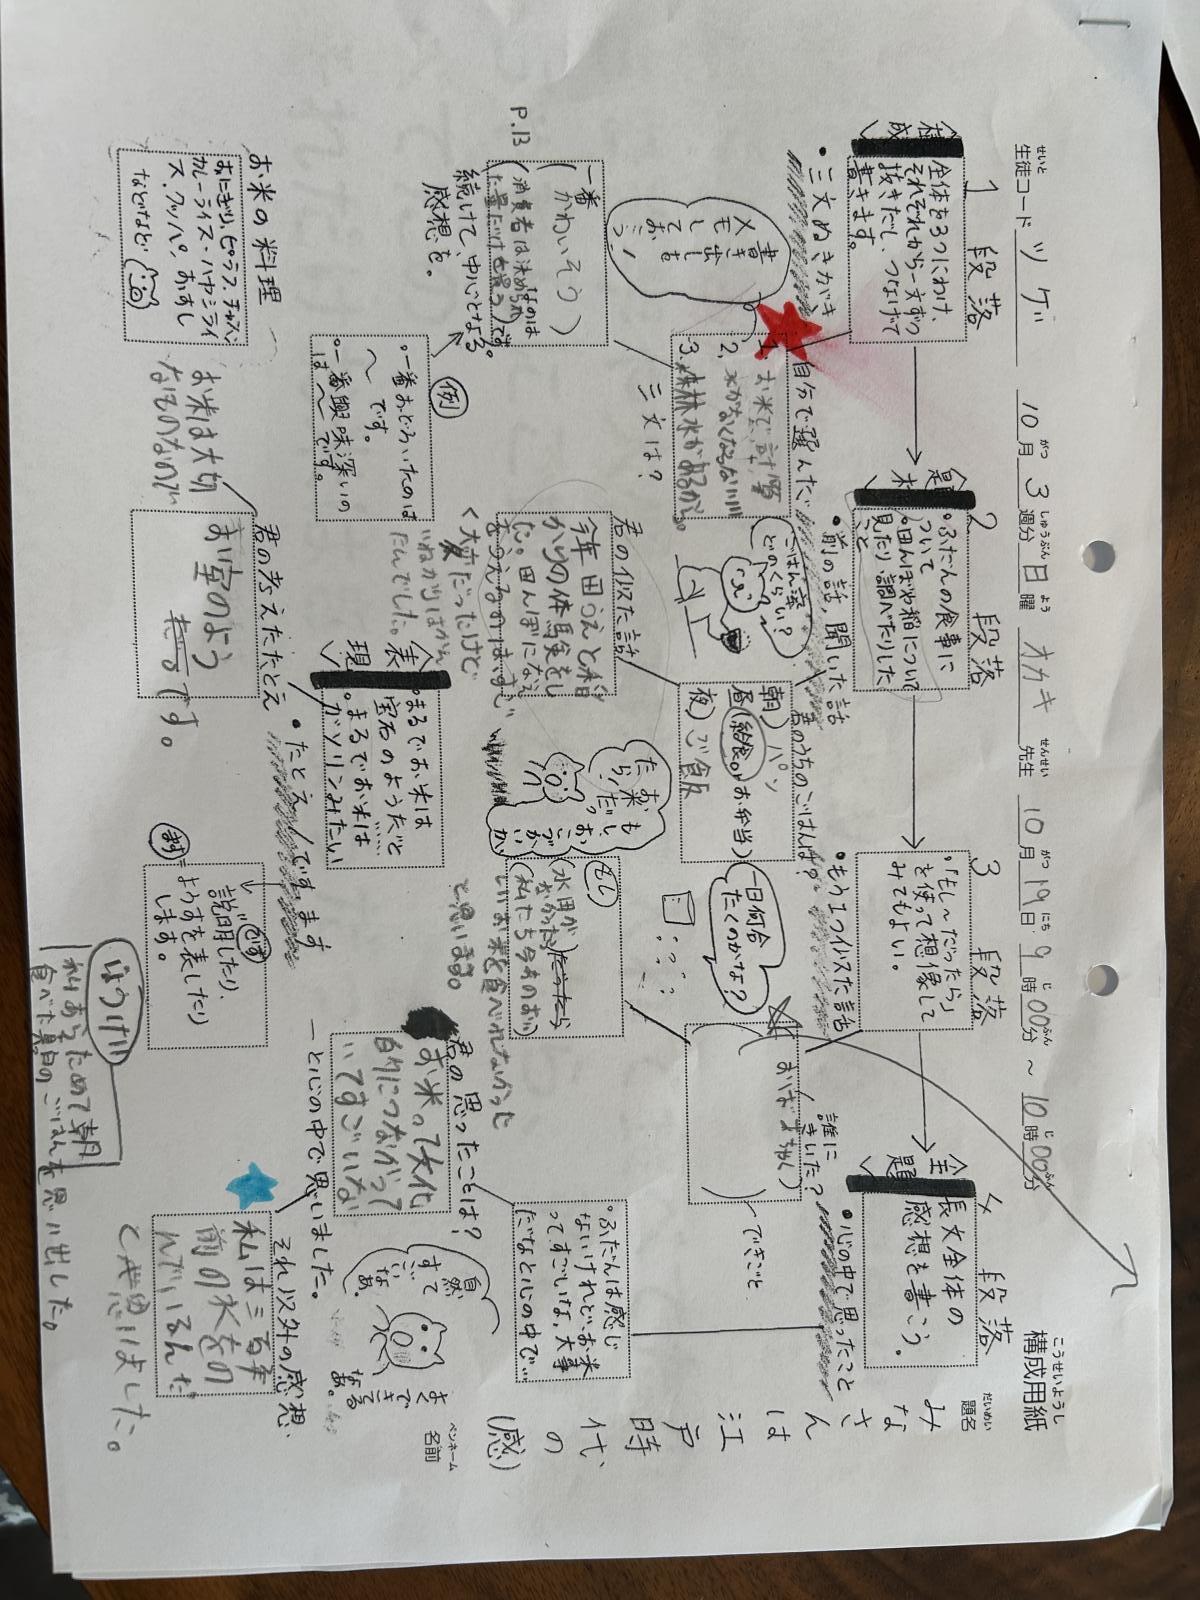 構成用紙
こうせいようし
題名
だいめい
みなさんは江戸時代の(感)
ペンネーム
名前
生徒コード ツゲ 10月3週分 日曜 オカキ先生 10月19日9時00分～10時00分
せいと がつ しゅうぶん よう せんせい がつ にち じ ふん じ ふん
1段落
構成
全体を3つにわけ、
それぞれから一文ずつ
抜きだし、つなげて
書きます。
・三文ぬきがき
自分で選んだ
三文は?
1. お米で、計算
2. 水がなくならない川
3. 森林水があるから。
書き出しも
メモして
おこう!
P.13
一番
(かわいそう)
(消費者は決められ
た量だけを買う)です。
なのは
続けて、中心となる
感想を。
例
・一番おどろいたのは
～です。
・一番興味深いの
は～です。
お米の料理
おにぎり、ピラフ、チャーハン
カレーライス・ハヤシライ
ス、クッパ、おすし
などなど
2段落
題材
・ふだんの食事に
ついて
・田んぼや稲について
見たり、調べたりした
こと
・前の話、聞いた話
君のうちのごはんは?
朝)パン
昼(給食orお弁当)
夜)ご飯
ごはん一膳
どのくらい?
一日何合
たくのかな?
君の似た話
今年田うえと稲
かりの体験をし
た。田んぼになえ
をうえるのはすご
く大変だったけど
いねかりはかん
たんでした。
表現
・まるでお米は
宝石のようだ…と
・まるでお米は
ガソリンみたい
・たとえ
君の考えたたとえ
お宝のよう
です。
お米は大切
なものなので
3段落
・「もし～だったら」
を使って想像して
みてもよい。
・もう1つ似た話
誰に
きいた?
(おばあちゃん)
できごと
もし
お米だっ
たら!
水田が
なかったら
(私たち今ごろおい
しいお米を食べれなかった
と思います。
です ます
です
↓
説明したり、
ようすを表したり
します。
ます
4段落
主題
長文全体の
感想を書こう。
・心の中で思ったこと
・ふだんは感じ
ないけれど、お米
ってすごいな、大事
だなと心の中で…
自然
すご
いなぁ。
よく
できて
るなあ。
君の思ったことは?
お米って文化
的につながって
いてすごいな
ーと心の中で思いました。
それ以外の感想
私は三百年
前の水をの
んでいるんだ
と思いました。
ようけい
私あらためて朝
食べた真白のごはんを思い出した。